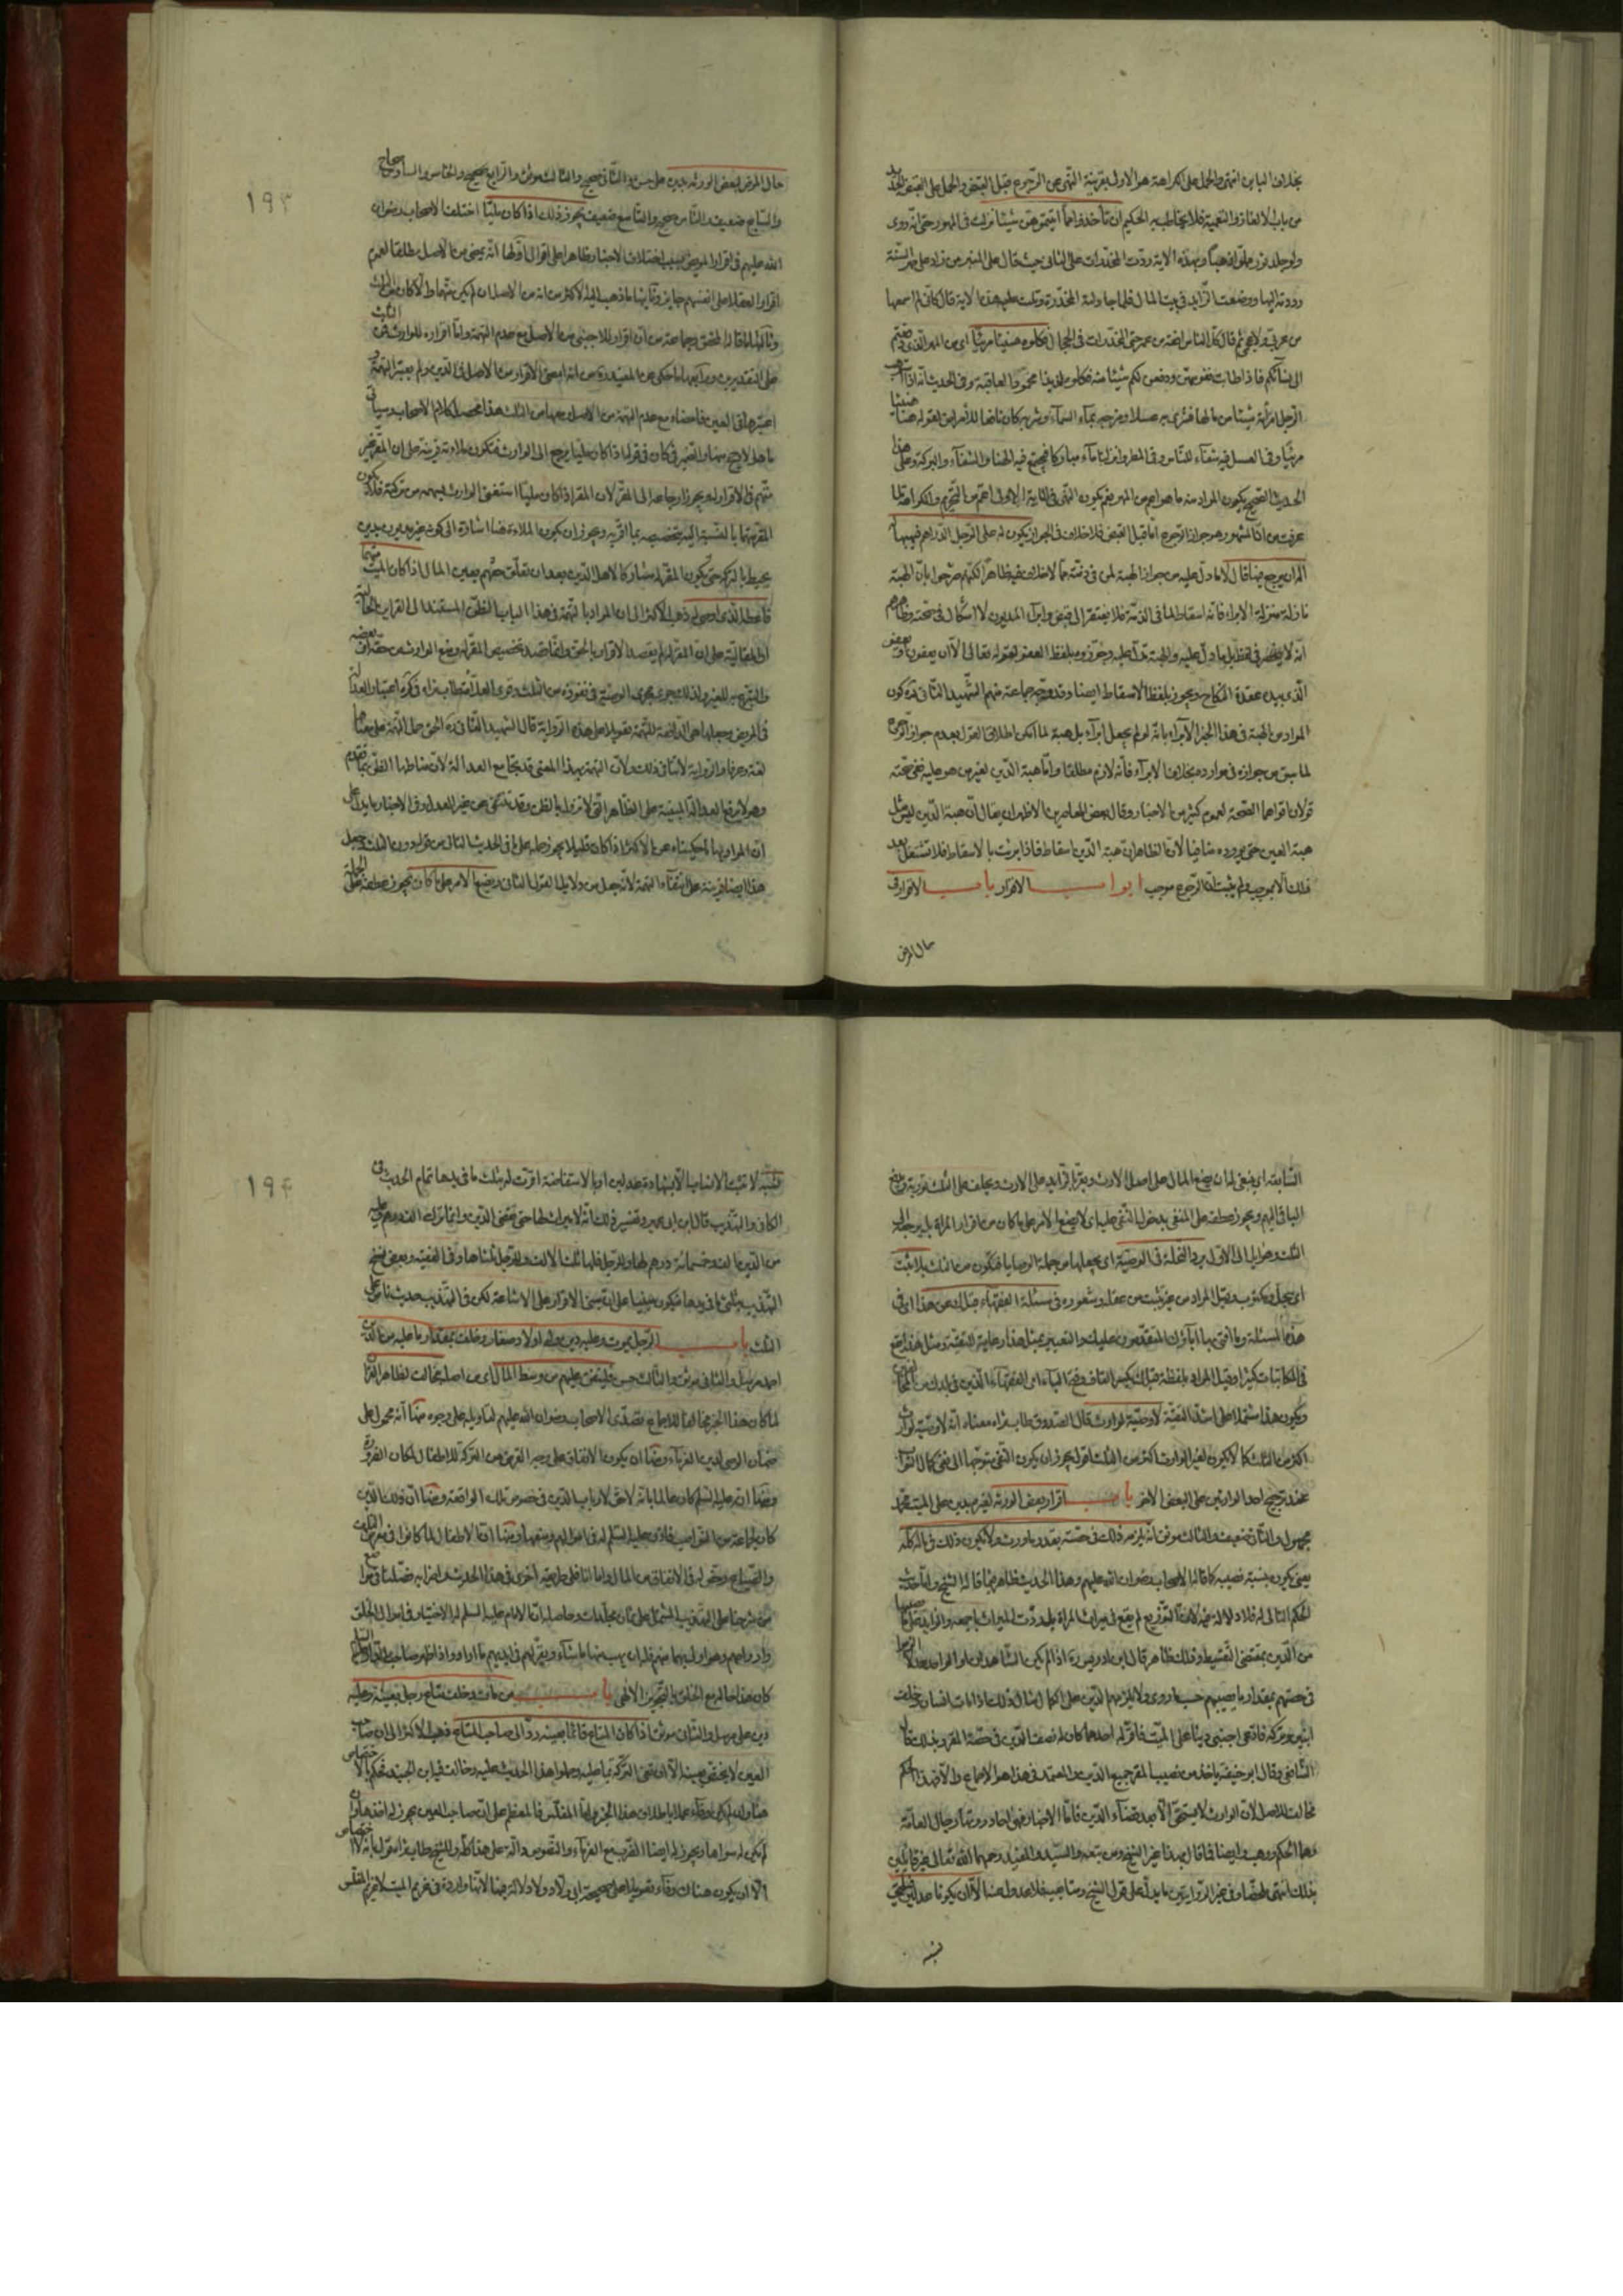 بخلاف الباين انتهى والحمل على الكراهة هو الاولى بقرينة النهى عن الرجوع قبل القبض والحمل على القبض
من باب الالغاز والتعمية فلا يخاطب به الحكيم ان تأخذوا مما اتيتموهن شيئا نزلت فى المهور حتى انه روى
وبهذه الاية ردت المخدرات على الثانى حيث قال على المنبر من زاد على مهر السنة
رددته اليها ووضعت الزايد فى بيت المال فلما جاءته المخدرة وتلت عليه هذه الاية قال كانى لم اسمعها
ثم قال كل الناس افقه من عمر حتى المخدرات فى الحجال فكلوه هنيئا مريئا اى من المهر الذى
الى نسائكم فاذا طابت نفوسهن ووهبن لكم شيئا منه فكلوه لذيذا محمود العاقبة وفى الحديث انه اذا
الرجل امرأته شيئا من مالها فشرى به عسلا ومزجه بماء السماء وشربه كان نافعا للامراض لقوله هنيئا
مريئا وفى العسل فيه شفاء للناس وفى المطر وانزلنا ماء مباركا فيجتمع فيه الهنا والشفاء والبركة وعلى هذا
الحديث الصحيح يكون المراد منه ما هو اعم من المهر نعم يكون النهى فى الاية الاولى اعم من التحريم والكراهة لما
عرفت من ان المشهور هو جواز الرجوع اما قبل القبض فلا خلاف فى الجواز يكون له على الرجل الدراهم فيهبها
اله ان يرجع فيها قال لا ما دل عليه من جواز الهبة لمن فى ذمته مما لا خلاف فيه ظاهرا لكنهم صرحوا بان الهبة
نازلة منزلة الابراء فانه اسقاط لما فى الذمة فلا يفتقر الى قبض وابراء المديون لا اشكال فى صحته وظاهرهم
انه لا ينحصر فى لفظ بل ما دل عليه والهبة تدل عليه وجوزوه بلفظ العفو لقوله تعالى الا ان يعفون او يعفو
الذى بيده عقدة النكاح ويجوز بلفظ الاسقاط ايضا وقد وجه جماعة منهم الشهيد الثانى ره كون
المراد من الهبة فى هذا الخبر الابراء بانه لو لم يجعل ابراء بل هبة لما امكن اطلاق القول بعدم جواز الرجوع
لما سبق من جوازه فى موارده بخلاف الابراء فانه لازم مطلقا واما هبة الدين لغير من هو عليه ففى صحته
قولان اقواهما الصحة لعموم كثير من الاخبار وقال بعض المعاصرين الاظهر ان يقال ان هبة الدين ليس مثل
هبة العين حتى يرد منافيا لان الظاهر ان هبة الدين اسقاط فاذا برئت بالاسقاط فلا تشتغل بعد
ذلك الا بموجب ولم يثبت ان الرجوع موجب ابواب الاقرار باب الاقرار فى
حال المرض
١٩٣
حال المرض لبعض الورثة بدين على حسن والثانى صحيح والثالث موثق والرابع صحيح والخامس والسادس صحاح
والسابع ضعيف والثامن صحيح والتاسع ضعيف يجوز ذلك اذا كان مليا اختلف الاصحاب رضوان
الله عليهم فى اقرار المريض بسبب اختلاف الاخبار ظاهرا على اقوال اولها انه يمضى من الاصل مطلقا لعموم
اقرار العقلاء على انفسهم جايز وثانيها ما ذهب اليه الاكثر من انه من الاصل ان لم يكن متهما والا كان من الثلث
وثالثها ما قاله المحقق وجماعة من ان اقراره للاجنبى من الاصل مع عدم التهمة واما اقراره للوارث فمن الثلث
على التقديرين ورابعها ما حكى عن المفيد ره من انه امضى الاقرار من الاصل فى الدين ولم يعتبر التهمة و
اعتبرها فى العين فامضاه مع عدم التهمة من الاصل ومعها من الثلث هذا محصل كلام الاصحاب وسياتى
ما هو الارجح منها والضمير فى كان فى قوله اذا كان مليا يرجع الى الوارث فتكون ملاءته قرينة على ان المقر غير
متهم فى الاقرار له ويجوز ارجاعه الى المقر لان المقر اذا كان مليا استغنى الوارث بسهمه من تركته فلا يكون
المقر متهما بالنسبة اليه بتخصيصه بما اقر به ويجوز ان يكون الملاءة هنا اشارة الى كونه غير مديون بدين
يحيط بالتركة حتى يكون المقر له مشاركا لاهل الدين بعد ان تعلق حقهم بعين المال اذا كان الميت متهما
فاعطه الذى اوصى له ذهب الاكثر الى ان المراد بالتهمة فى هذا الباب الظن المستند الى القراين الحالية
او المقالية على ان المقر لم يقصد الاقرار بالحق وانما قصد تخصيص المقر له ومنع الوارث عن حقه او بعضه
والتبرع به للغير ولذلك جرى مجرى الوصية فى نفوذه من الثلث وقوى العلامة طاب ثراه فى كره اعتبار العدالة
فى المريض وجعلها هى الدافعة للتهمة تعويلا على هذه الرواية قال الشهيد الثانى ره الحق حمل التهمة على معناها
لغة وعرفا والرواية لا تنافى ذلك ولان التهمة بهذا المعنى قد تجامع العدالة لان مناطها الظن بما تقدم
وهو لا يرفع العدالة المبنية على الظاهر التى لا تزول بالظن وقد تنتفى عن غير العدل وفى الاخبار ما يدل على
ان المراد بها ما حكيناه عن الاكثر اذا كان قليلا يجوز حمله على ما فى الحديث الثانى من قوله دون الثلث وجعل
هذا ايضا قرينة على انتفاء التهمة لانه جعل من دلايل القول الثانى ويضعها الامر على ما كان يجوز عطفه على الجملة
السابقة اى ينبغى لها ان يضع المال على اصل الارث ويقر بالزايد على الارث ويحلف على الثلث
الباقى اليهم ويجوز عطفه على المنفى بدخول النفى عليها اى لا يضع الامر على ما كان من اقرار المرأة بل يرجع الى
الثلث وهو ايل الى الاول يرد النحلة فى الوصية اى يجعلها من جملة الوصايا فتكون من الثلث بلا ثبت
هذه المسئلة وما افتى بها اباؤك المتقدمون عليك والتعبير بمثل هذا رعاية للتقية ومثل هذا يقع
فى المكاتبات كثيرا وقيل المراد بلفظة قبلك بكسر القاف وفتح الباء اى الفقهاء الذين فى بلدك من المخالفين
ويكون هذا مشتملا على اشد التقية لا وصية لوارث قال الصدوق طاب ثراه معناه انه لا وصية لوارث
اكثر من الثلث كما لا تكون لغير الوارث اكثر من الثلث اقول يجوز ان يكون النفى متوجها الى نفى كمال الثواب
عند ترجيح احد الوارثين على البعض الاخر باب اقرار بعض الورثة لغيره بدين على الميت
مجهول والثانى ضعيف والثالث موثق انه يلزمه ذلك فى حصته بقدر ما ورث ولا يكون ذلك فى ماله كله
يعنى يكون بنسبة نصيبه كما قاله الاصحاب رضوان الله عليهم وهذا الحديث ظاهر فيما قاله الشيخ واما حديث
الحكم التالى له فلا دلالة فيه لان التوزيع لم يقع فى ميراث المرأة بل ردت الميراث باجمعه وانما بقى عليها نصيبها
من الدين بمقتضى التقسيط وذلك ظاهر قال ابن ادريس ره اذا لم يكن الشاهدان او الواحد عدلا
فى حصتهم بمقدار ما يصيبهم حسب ما روى ولا يلزمهم الدين على الكمال مثال ذلك اذا مات انسان وخلف
ابنين وتركة فادعى اجنبى دينا على الميت فاقر له احدهما كان له نصف الدين فى حصة المقر وبذلك قال
الشافعى وقال ابو حنيفة ياخذ من نصيب المقر جميع الدين والمعتمد فى هذا هو الاجماع والا فهذا الحكم
مخالف للاصل لان الوارث لا يستحق الا بعد قضاء الدين فاما الاخبار فهى احاد ورواتها رجال العامة
وهذا الحكم مذهب ايضا فما قال بهذا غير الشيخ ومن تبعه والسيد والمفيد رحمهما الله تعالى غير قائلين
بذلك انتهى
تنبيه
١٩٤
تنبيه لا تثبت الانساب الا بشهادة عدلين او بالاستفاضة اقرت له بثلث ما فى يدها تمام الحديث فى
الكافى والتهذيب قال ابن ابى عمير وتفسير ذلك انه لا ميراث لها حتى تقضى الدين وانما ترك الف درهم وعليه
من الدين الف وخمسمائة درهم لها وللرجل فلها ثلث الالف وللرجل ثلثاها وفى الفقيه وبعض نسخ
التهذيب بثلثى ما فى يدها فيكون مبنيا على الاقرار على الاشاعة لكن فى التهذيب حديث ناص على
الثلث باب الرجل يموت وعليه دين وله اولاد صغار وخلف بمقدار ما عليه من الدين
احدهم مرسل والثانى موثق والثالث حسن فلينفق عليهم من وسط المال اى من اصله مخالف لظاهر القران
لما كان هذا الخبر مخالفا للاجماع تصدى الاصحاب رضوان الله عليهم لتاويله على وجوه منها انه محمول على
ضمان الوصى لدين الغرماء ومنها ان يكون الانفاق على وجه القرض من التركة للاطفال لمكان الضرورة
ومنها انه عليه السلم كان عالما بانه لا حق لارباب الدين فى خصوص تلك الواقعة ومنها ان ذلك الدين
كان لجماعة من النواصب فاذن عليه السلم له فى اموالهم ومنعها ومنها ان الاطفال لما كانوا فى معرض التلف
والضياع رخص له فى الانفاق من المال واما انا فلى طريقة اخرى فى هذا الحديث وامثاله فصلناها فى مواضع
من شرحنا على التهذيب المشتمل على ثمان مجلدات وحاصله ان الامام عليه السلم له الاختيار فى اموال الخلق
وارواحهم وهو اولى بهما منهم فله ان يهب منها ما شاء ويقر لهم فى ايديهم ما اراد واذا ظهر صاحب الدار عليه السلم
كان هذا حاله مع الخلق بالتجويز الالهى باب من مات وخلف متاع رجل بعينه وعليه
دين على مرسل والثانى موثق اذا كان المتاع قائما بعينه رد الى صاحب المتاع ذهب الاكثر الى ان صاحب
العين لا يختص بعينه الا ان تفى التركة بما عليه وحملوا هذا الحديث عليه وخالف فيه ابن الجنيد فحكم بالاختصاص
هنا وان لم يكن وفاء عملا باطلاق هذا الخبر واما المفلس فالمعظم على ان صاحب العين يجوز له اخذها وان
لم يكن له سواها ويجوز له ايضا الضرب مع الغرماء والنصوص دالة على هذا كله وللشيخ طاب ثراه قول بانه لا اختصاص
الا ان يكون هناك وفاء تعويلا على صحيحة ابى ولاد ولا دلالة فيها لانها واردة فى غريم الميت لا غريم المفلس